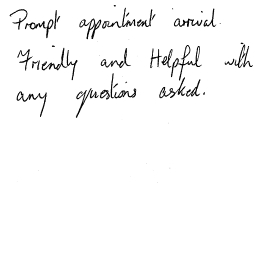 Prompt appointment arrival.
Friendly and Helpful with
any questions asked.